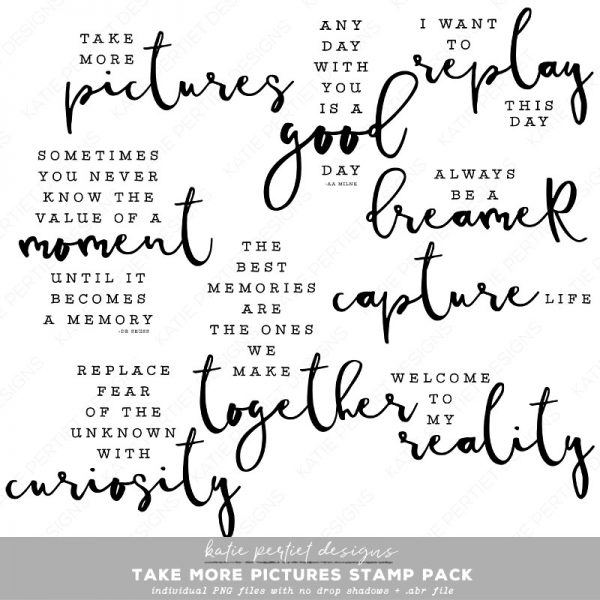 TAKE
MORE
pictures
ANY
DAY
WITH
YOU
IS A
good
DAY
-AA MILNE
I WANT
TO
replay
THIS
DAY
SOMETIMES
YOU NEVER
KNOW THE
VALUE OF A
moment
UNTIL IT
BECOMES
A MEMORY
-DR SEUSS
ALWAYS
BE A
dreameR
THE
BEST
MEMORIES
ARE
THE ONES
WE
MAKE
together
capture LIFE
REPLACE
FEAR
OF THE
UNKNOWN
WITH
curiosity
WELCOME
TO
MY
reality
katie pertiet designs
TAKE MORE PICTURES STAMP PACK
individual PNG files with no drop shadows + .abr file
KATIE PERTIET DESIGNS